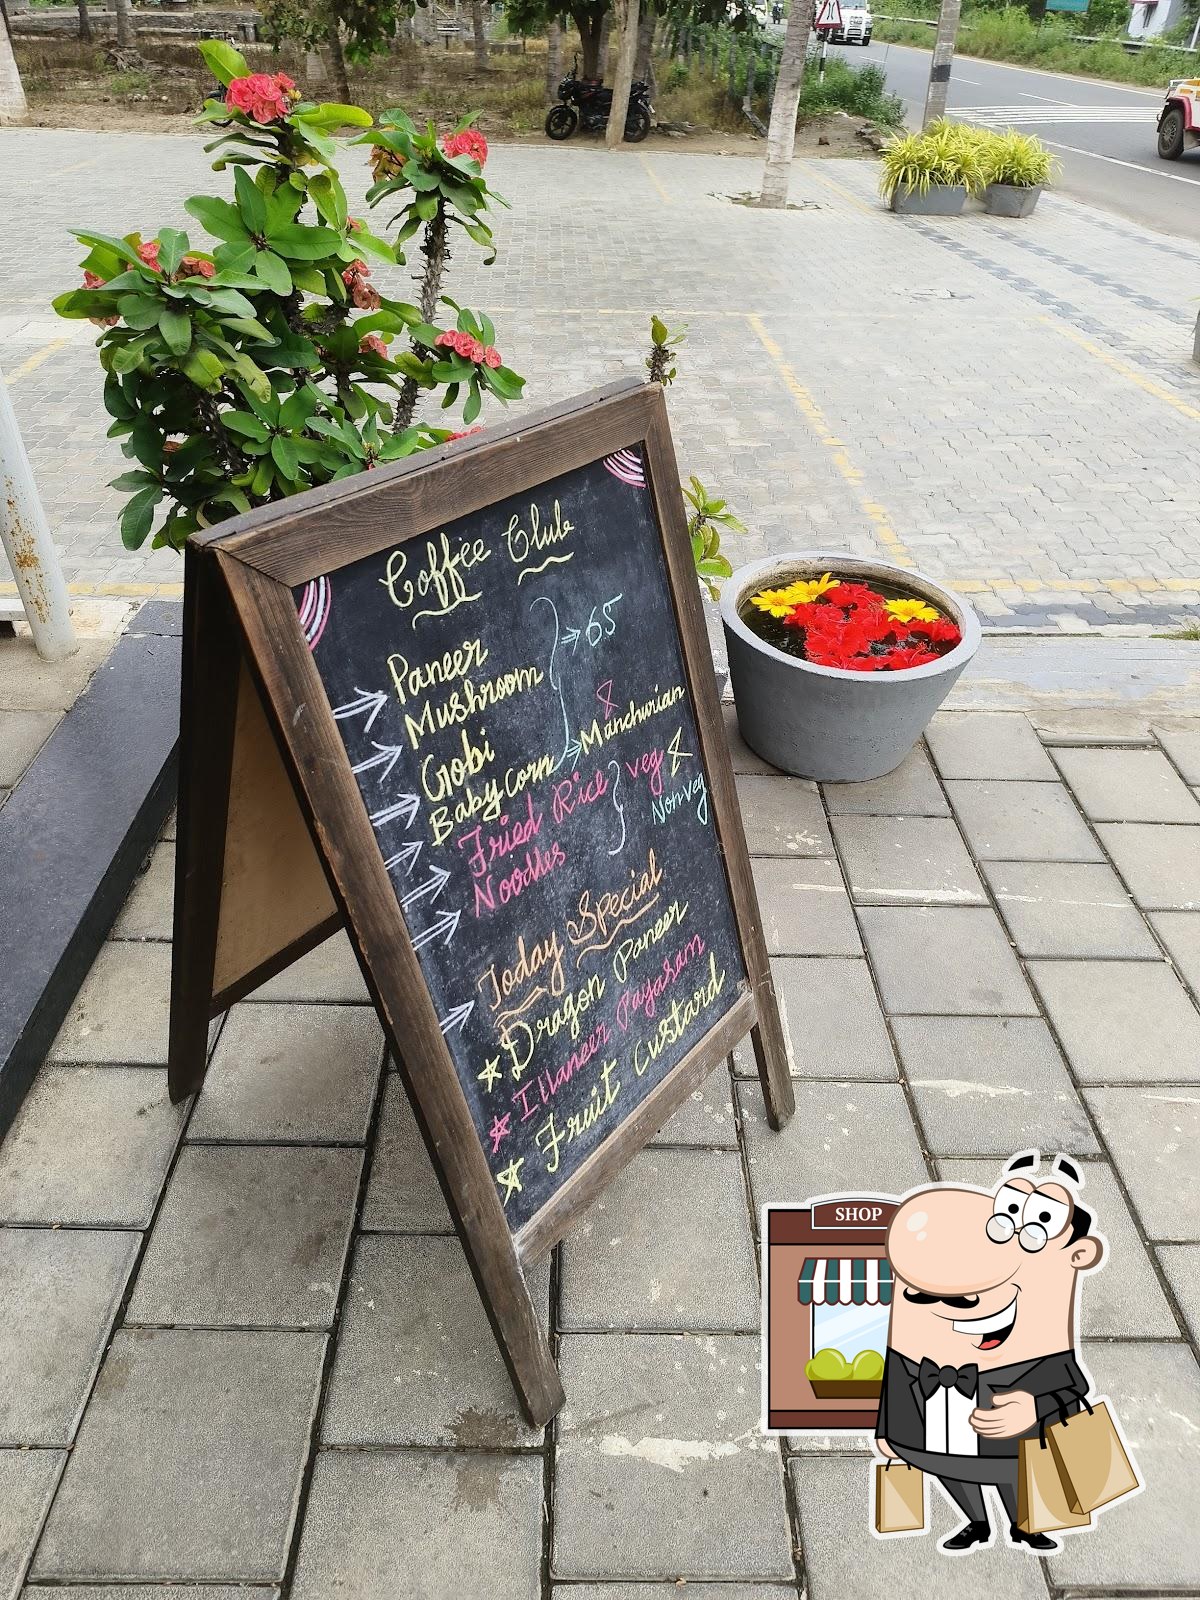 Coffee Club
Paneer
Mushroom
Gobi
Baby Corn
65
&
Manchurian
Fried Rice
Noodles
Veg &
Nonveg
Today Special
Dragon Paneer
Illaneer Payasam
Fruit Custard
SHOP